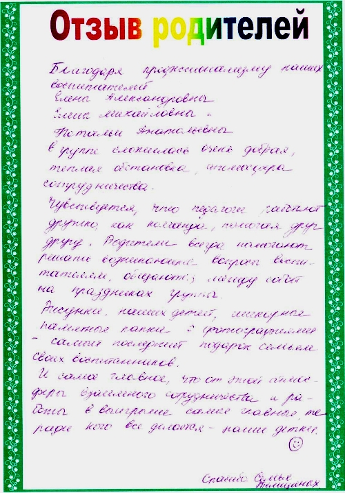 Отзыв родителей
Благодаря профессионализму наших
воспитателей
Елены Александровны
Елены Михайловны и
Натальи Анатольевны
в группе сложилась очень добрая,
теплая обстановка, атмосфера
сотрудничества.
Чувствуется, что педагоги работают
дружно как команда, помогая друг
другу. Родители всегда помогают
решать возникающие вопросы воспи-
тателям, общаются между собой
на праздниках группы
Рисунки наших детей,
памятное панно с фотографиями
- самый подарок семьям
своих воспитанников.
И самое главное, что от этой атмос-
феры взаимного сотрудничества и ра-
боты в выигрыше самые главные те
ради кого все делается - наши детки.
Спасибо Семья